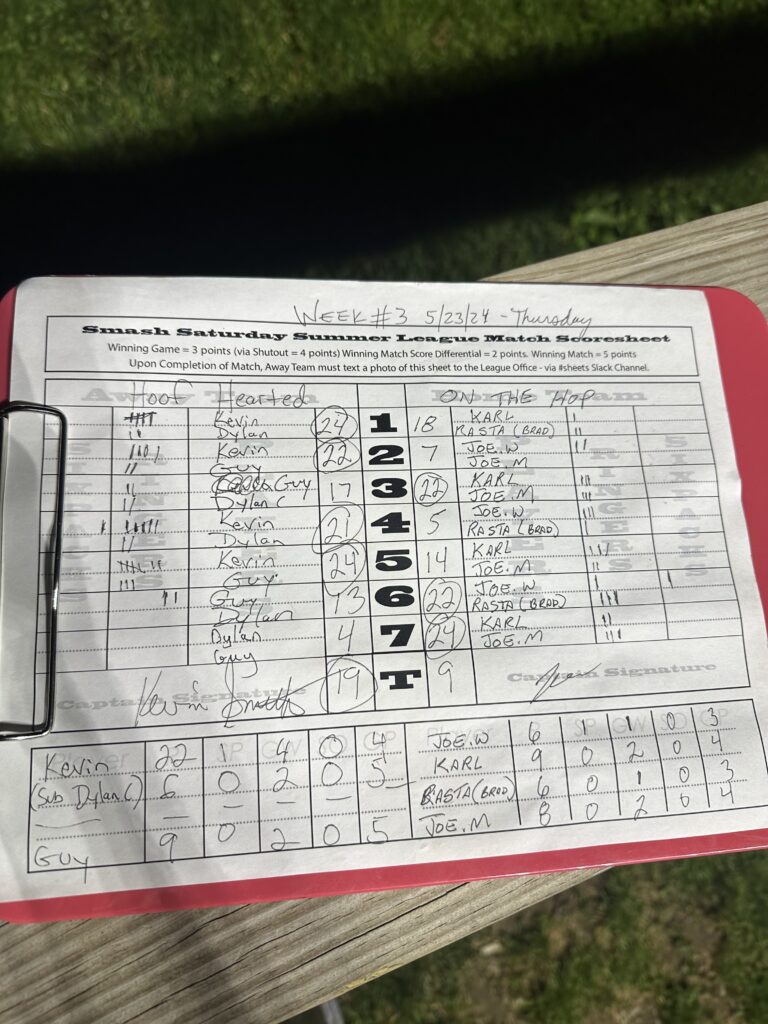 WEEK #3 5/23/24 - Thursday
Smash Saturday Summer League Match Scoresheet
Winning Game = 3 points (via Shutout = 4 points) Winning Match Score Differential = 2 points. Winning Match = 5 points
Upon Completion of Match, Away Team must text a photo of this sheet to the League Office - via #sheets Slack Channel.
Hoof Hearted ON THE HOP
Kevin 24 1 18 KARL
Dylan RASTA (BRAD)
Kevin 22 2 7 JOE.W
Guy JOE.M
Guy 17 3 22 KARL
Dylan C JOE.M
Kevin 21 4 5 JOE.W
Dylan RASTA (BRAD)
Kevin 24 5 14 KARL
Guy JOE.M
Guy 13 6 22 JOE.W
Dylan RASTA (BRAD)
Dylan 4 7 24 KARL
Guy JOE.M
19 T 9
Captain Signature Captain Signature
Kevin 22 1 4 0 4 JOE.W 6 1 1 0 3
(Sub Dylan C) 6 0 2 0 5 KARL 9 0 2 0 4
— — — — RASTA (BRAD) 6 0 1 0 3
Guy 9 0 2 0 5 JOE.M 8 0 2 0 4